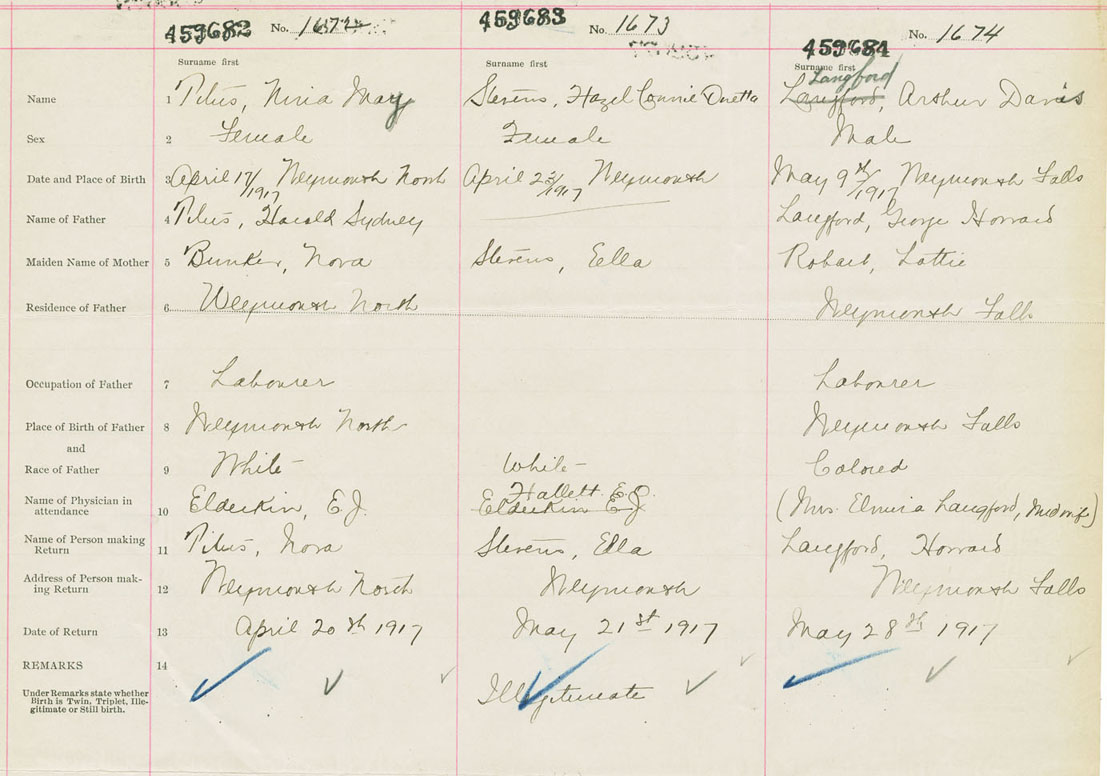 459682 No. 1672 459683 No. 1673 459684 No. 1674
Surname first Surname first Surname first
Langford
Name 1 Titus, Niria May Stevens, Hazel Connie Duetta Langford, Arthur Davis
Sex 2 Female Female Male
Date and Place of Birth 3 April 17/1917 Weymouth North April 23/1917 Weymouth May 9th/1917 Weymouth Falls
Name of Father 4 Titus, Harold Sydney Langford, George Howard
Maiden Name of Mother 5 Bunker, Nora Stevens, Ella Robart, Lottie
Residence of Father 6 Weymouth North Weymouth Falls
Occupation of Father 7 Labourer Labourer
Place of Birth of Father 8 Weymouth North Weymouth Falls
and
Race of Father 9 White White Colored
Hallett E.
Name of Physician in
attendance 10 Elderkin, E J. Elderkin E J (Mrs. Elmira Langford, Midwife)
Name of Person making
Return 11 Titus, Nora Stevens, Ella Langford, Howard
Address of Person mak-
ing Return 12 Weymouth North Weymouth Weymouth Falls
Date of Return 13 April 20th 1917 May 21st 1917 May 28th 1917
REMARKS 14
Under Remarks state whether
Birth is Twin, Triplet, Ille-
gitimate or Still birth. Illegitimate